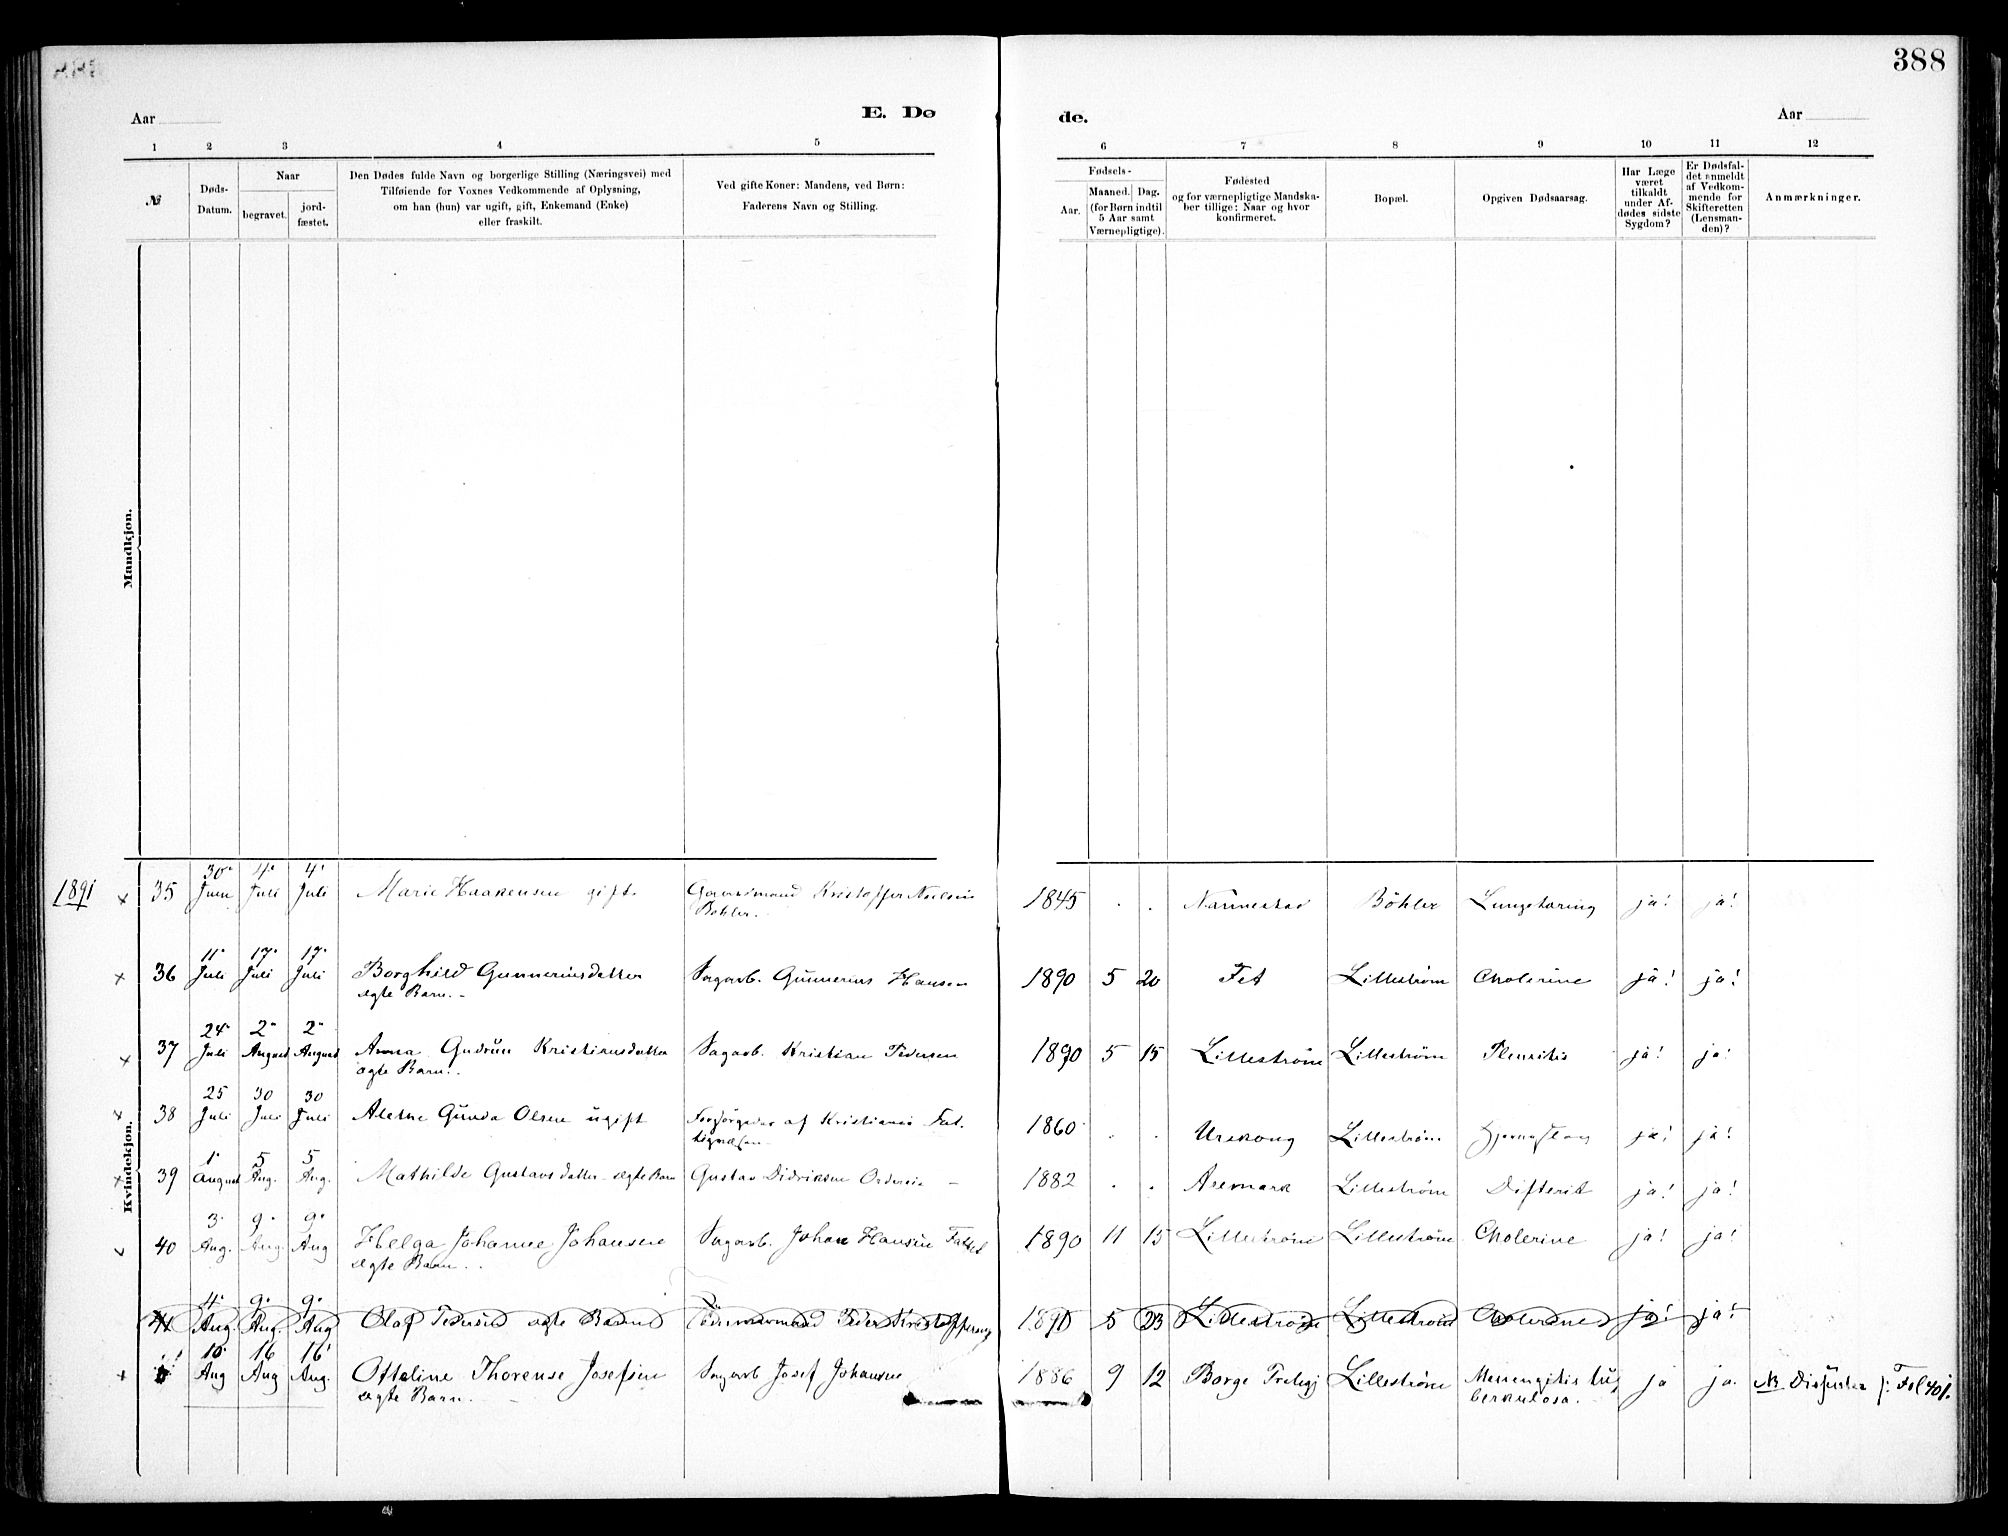 388
Aar
E. Dø
de.
Aar
1 2 3 4 5 6 7 8 9 10 11 12
№
Døds-
Datum.
Naar
begravet.
jord-
fæstet.
Den Dødes fulde Navn og borgerlige Stilling (Næringsvei) med
Tilføiende for Voxnes Vedkommende af Oplysning,
om han (hun) var ugift, gift, Enkemand (Enke)
eller fraskilt.
Ved gifte Koner: Mandens, ved Børn:
Faderens Navn og Stilling.
Fødsels-
Aar.
Maaned. Dag.
(for Børn indtil
5 Aar samt
Værnepligtige).
Fødested
og for værnepligtige Mandska-
ber tillige: Naar og hvor
konfirmeret.
Bopæl.
Opgiven Dødsaarsag.
Har Læge
været
tilkaldt
under Af-
dødes sidste
Sygdom?
Er Dødsfal-
det anmeldt
af Vedkom-
mende for
Skifteretten
(Lensman-
den)?
Anmærkninger.
Mandkjøn.
Kvindekjøn.
1891
× 35 30 Juni 4 Juli 4 Juli Marie Haakensen gift Gaardmand Kristoffer Neilsen 1845 Nannestad Böhler Lungetæring ja! ja!
Böhler
× 36 11 Juli 17 Juli 17 Juli Borghild Gunneriusdatter Sagarb. Gunnerius Hansen 1890 5 20 Fet Lilleström Cholerine ja! ja!
ægte Barn.
× 37 24 Juli 2 August 2 August Anna Gudrun Kristiansdatter Sagarb. Kristian Pedersen 1890 5 15 Lilleström Lilleström Pleuritis ja! ja!
ægte Barn.
× 38 25 Juli 30 Juli 30 Juli Gunda Olsen ugift Forsörgedes af Kristiania Fat- 1860 Urskoug Lilleström ja! ja!
tigvæsen
× 39 1 August 5 Aug. 5 Aug. Mathilde Gustavsdatter ægte Barn Gustav Didriksen 1882 Aremark Lilleström Difterit ja! ja!
40 3 Aug. 9 Aug. 9 Aug Helga Johanne Johansen Sagarb. Johan Hansen 1890 11 15 Lilleström Lilleström Cholerine ja! ja!
ægte Barn.
41 4 Aug. 9 Aug. 9 Aug Olaf Pedersen ægte Barn Peder 5 23 Lilleström Lilleström Cholerine ja! ja!
× 15 Aug 16 Aug 16 Aug. Ottoline Thorense Josefsen Sagarb Josef Johansen 1886 9 12 Borge Lilleström Meningitis tu- ja ja. NB Fol 401.
ægte Barn. berkulosa.